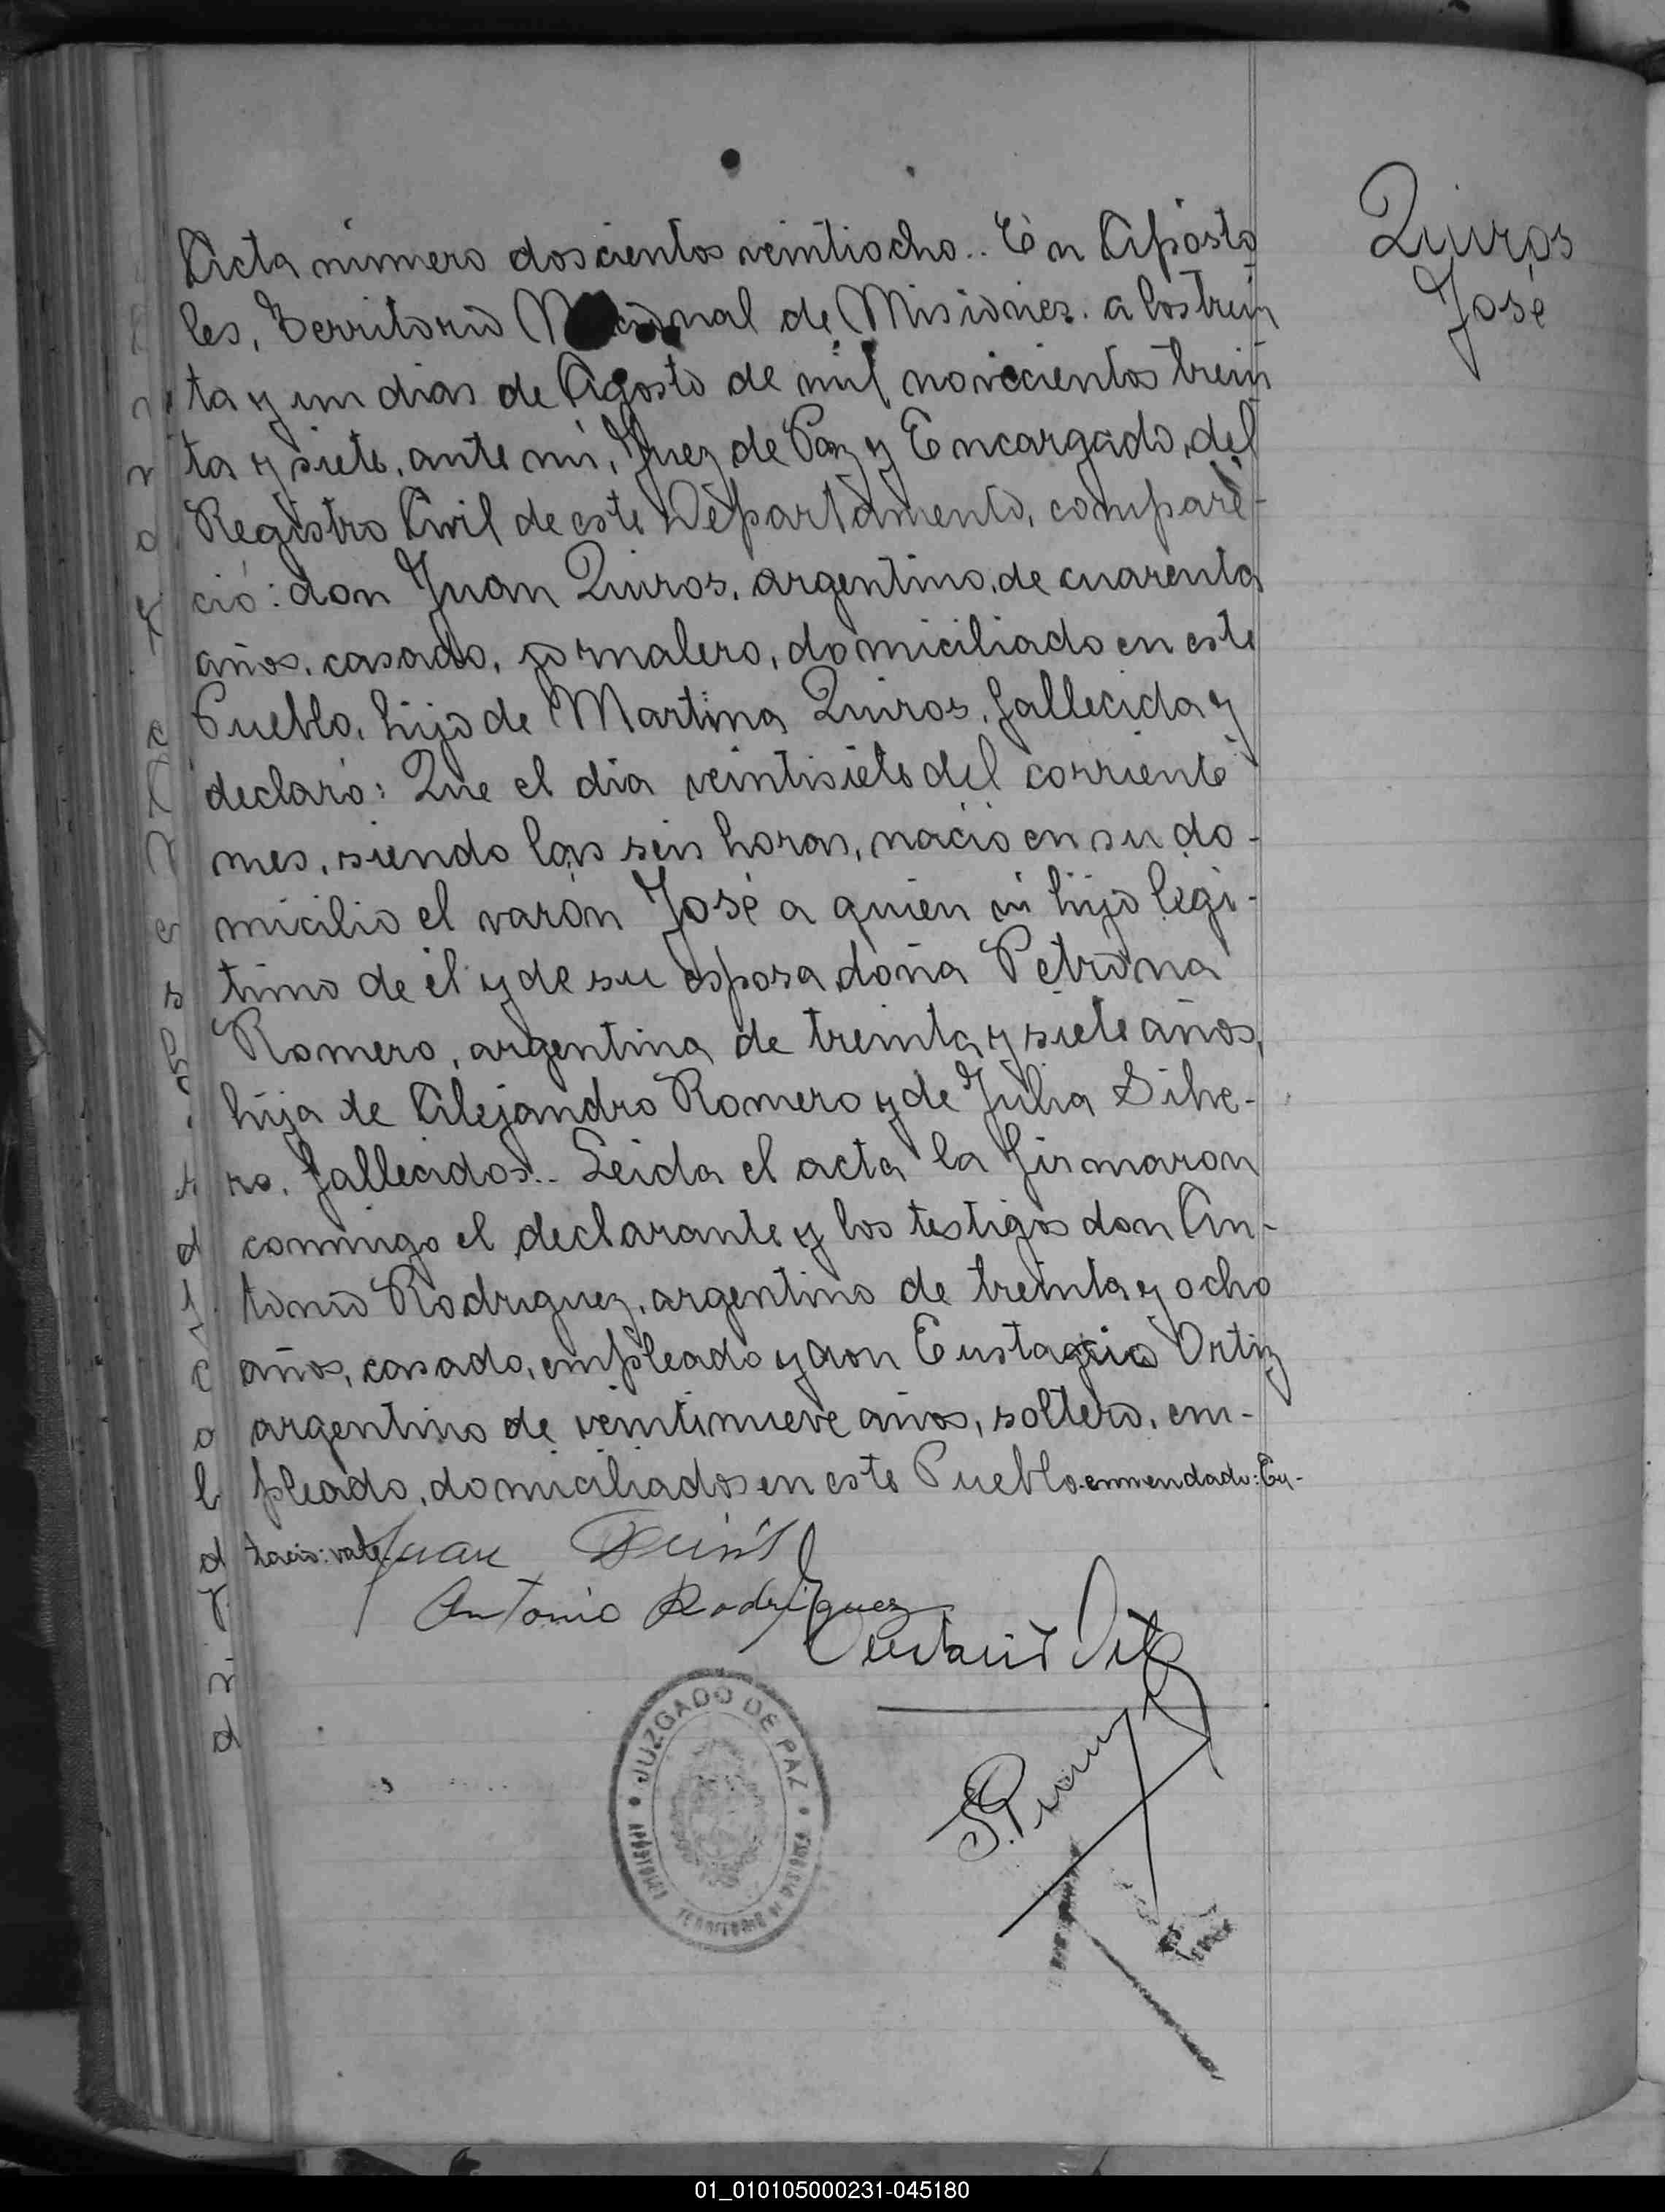 Quiros
José
Acta número doscientos veintiocho.. En Aposto
les, Territorio Nacional de Misiones. a los trein
ta y un dias de Agosto de mil novecientos trein
ta y siete, ante mi, Juez de Paz y Encargado, del
Registro Civil de este Departamento, compare-
ció: don Juan Quiros, argentino, de cuarenta
años, casado, jornalero, domiciliado en este
Pueblo, hijo de Martina Quiros, fallecida y
declaró: Que el dia veintisiete del corriente
mes, siendo las seis horas, nació en su do-
micilio el varón José a quien vi hijo legi-
timo de él y de su esposa doña Petrona
Romero, argentina de treinta y siete años,
hija de Alejandro Romero y de Julia Silve-
ro, fallecidos.. Leida el acta la firmaron
conmigo el declarante y los testigos don An-
tonio Rodriguez, argentino de treinta y ocho
años, casado, empleado y don Eustacio Ortiz
argentino de veintinueve años, soltero, em-
pleado, domiciliados en este Pueblo. enmendado: Eu-
tacio: vale.
Juan Quirós
Antonio Rodriguez
Eustacio Ortiz
JUZGADO DE PAZ
APÓSTOLES
TERRITORIO DE MISIONES
01_010105000231-045180